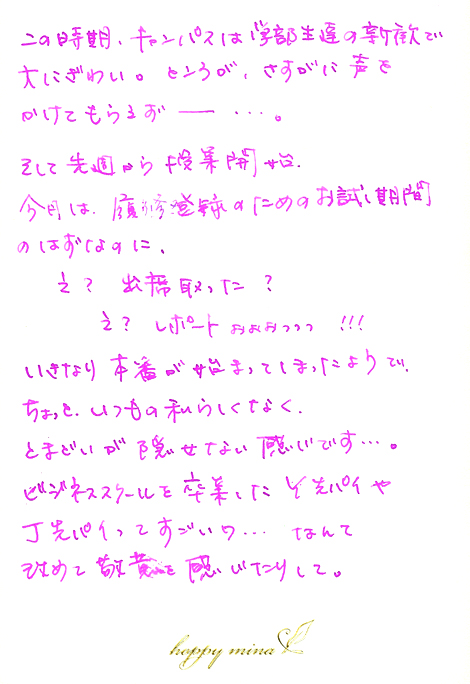 この時期、キャンパスは学部生達の新歓で
大にぎわい。ところが、さすがに声を
かけてもらえず ── …。
そして先週から授業開始。
今月は、履修登録のためのお試し期間
のはずなのに、
え？ 出席取った？
え？ レポートぉぉぉっっっ !!!
いきなり本番が始まってしまったようで、
ちょっと、いつもの私らしくなく、
とまどいが隠せない感じです…。
ビジネススクールを卒業したY先パイや
J先パイってすごいワ… なんて
改めて敬意を感じたりして。
happy mina